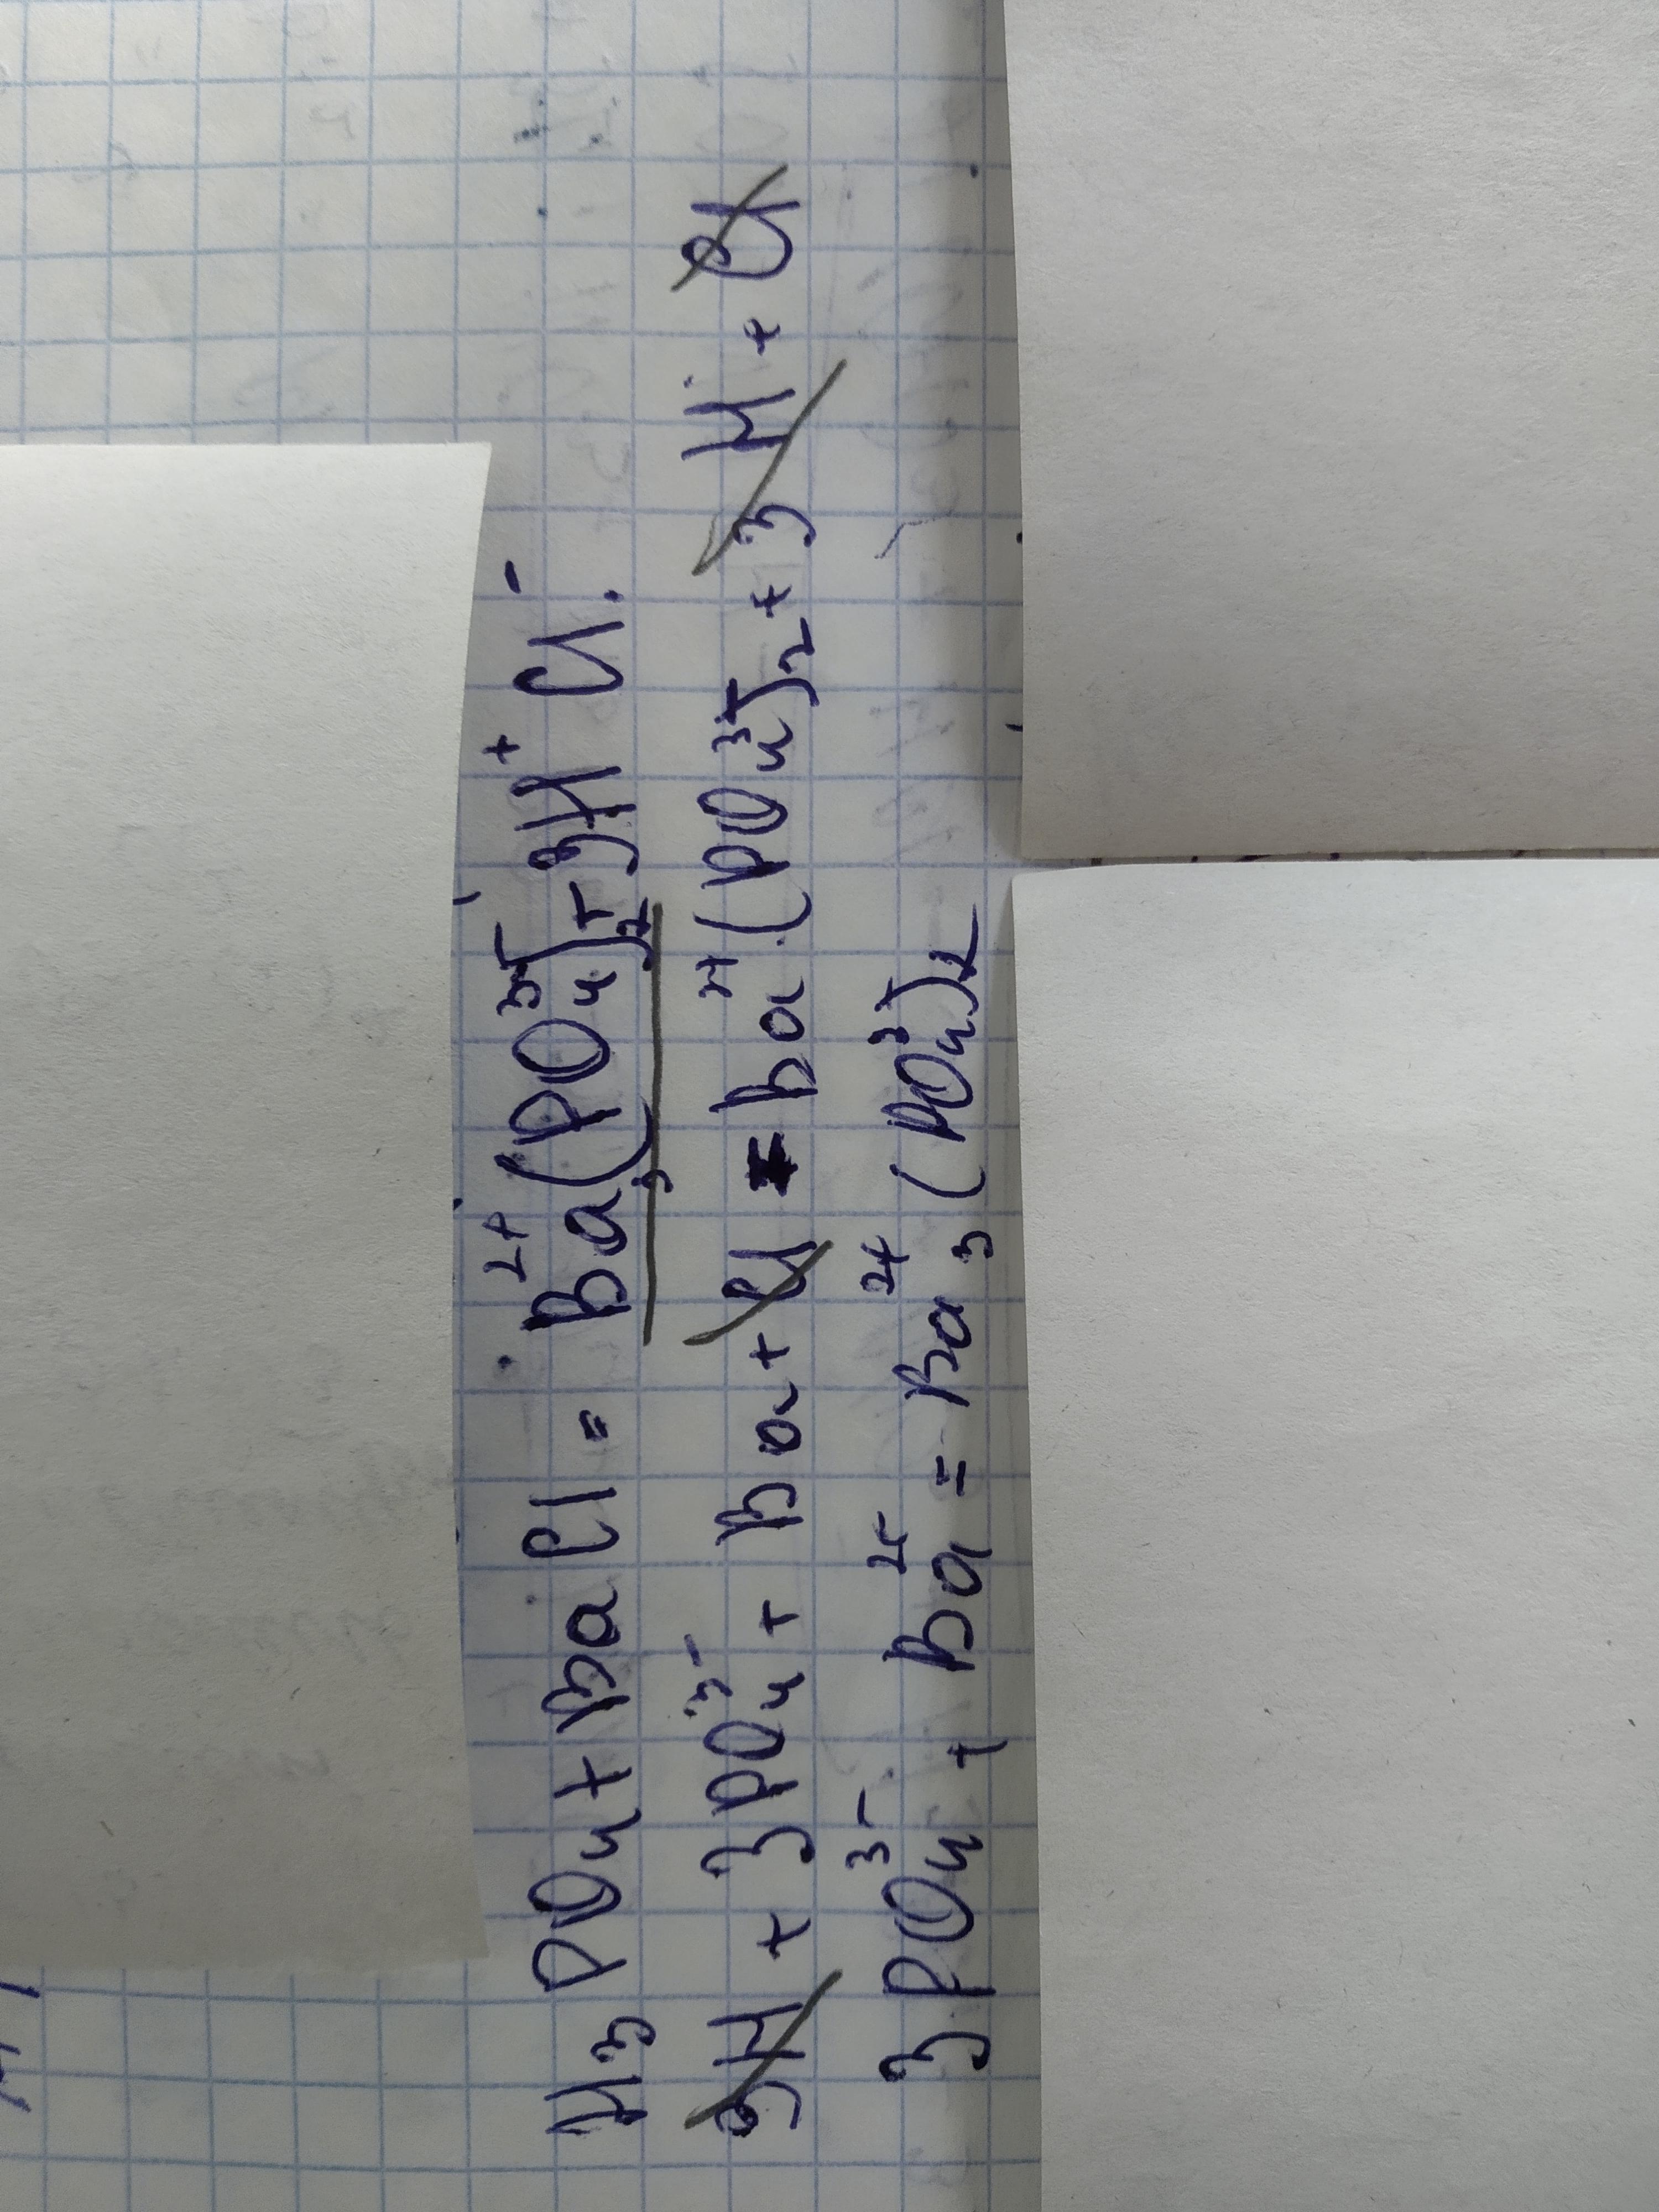 H₃PO₄ + BaCl = Ba₃²⁺(PO₄³⁻)₂ + 3H⁺Cl⁻.
3H + 3PO₄³⁻ + Ba + Cl = Ba²⁺(PO₄³⁻)₂ + 3H + Cl
3PO₄³⁻ + Ba²⁺ = Ba₃²⁺(PO₄³⁻)₂